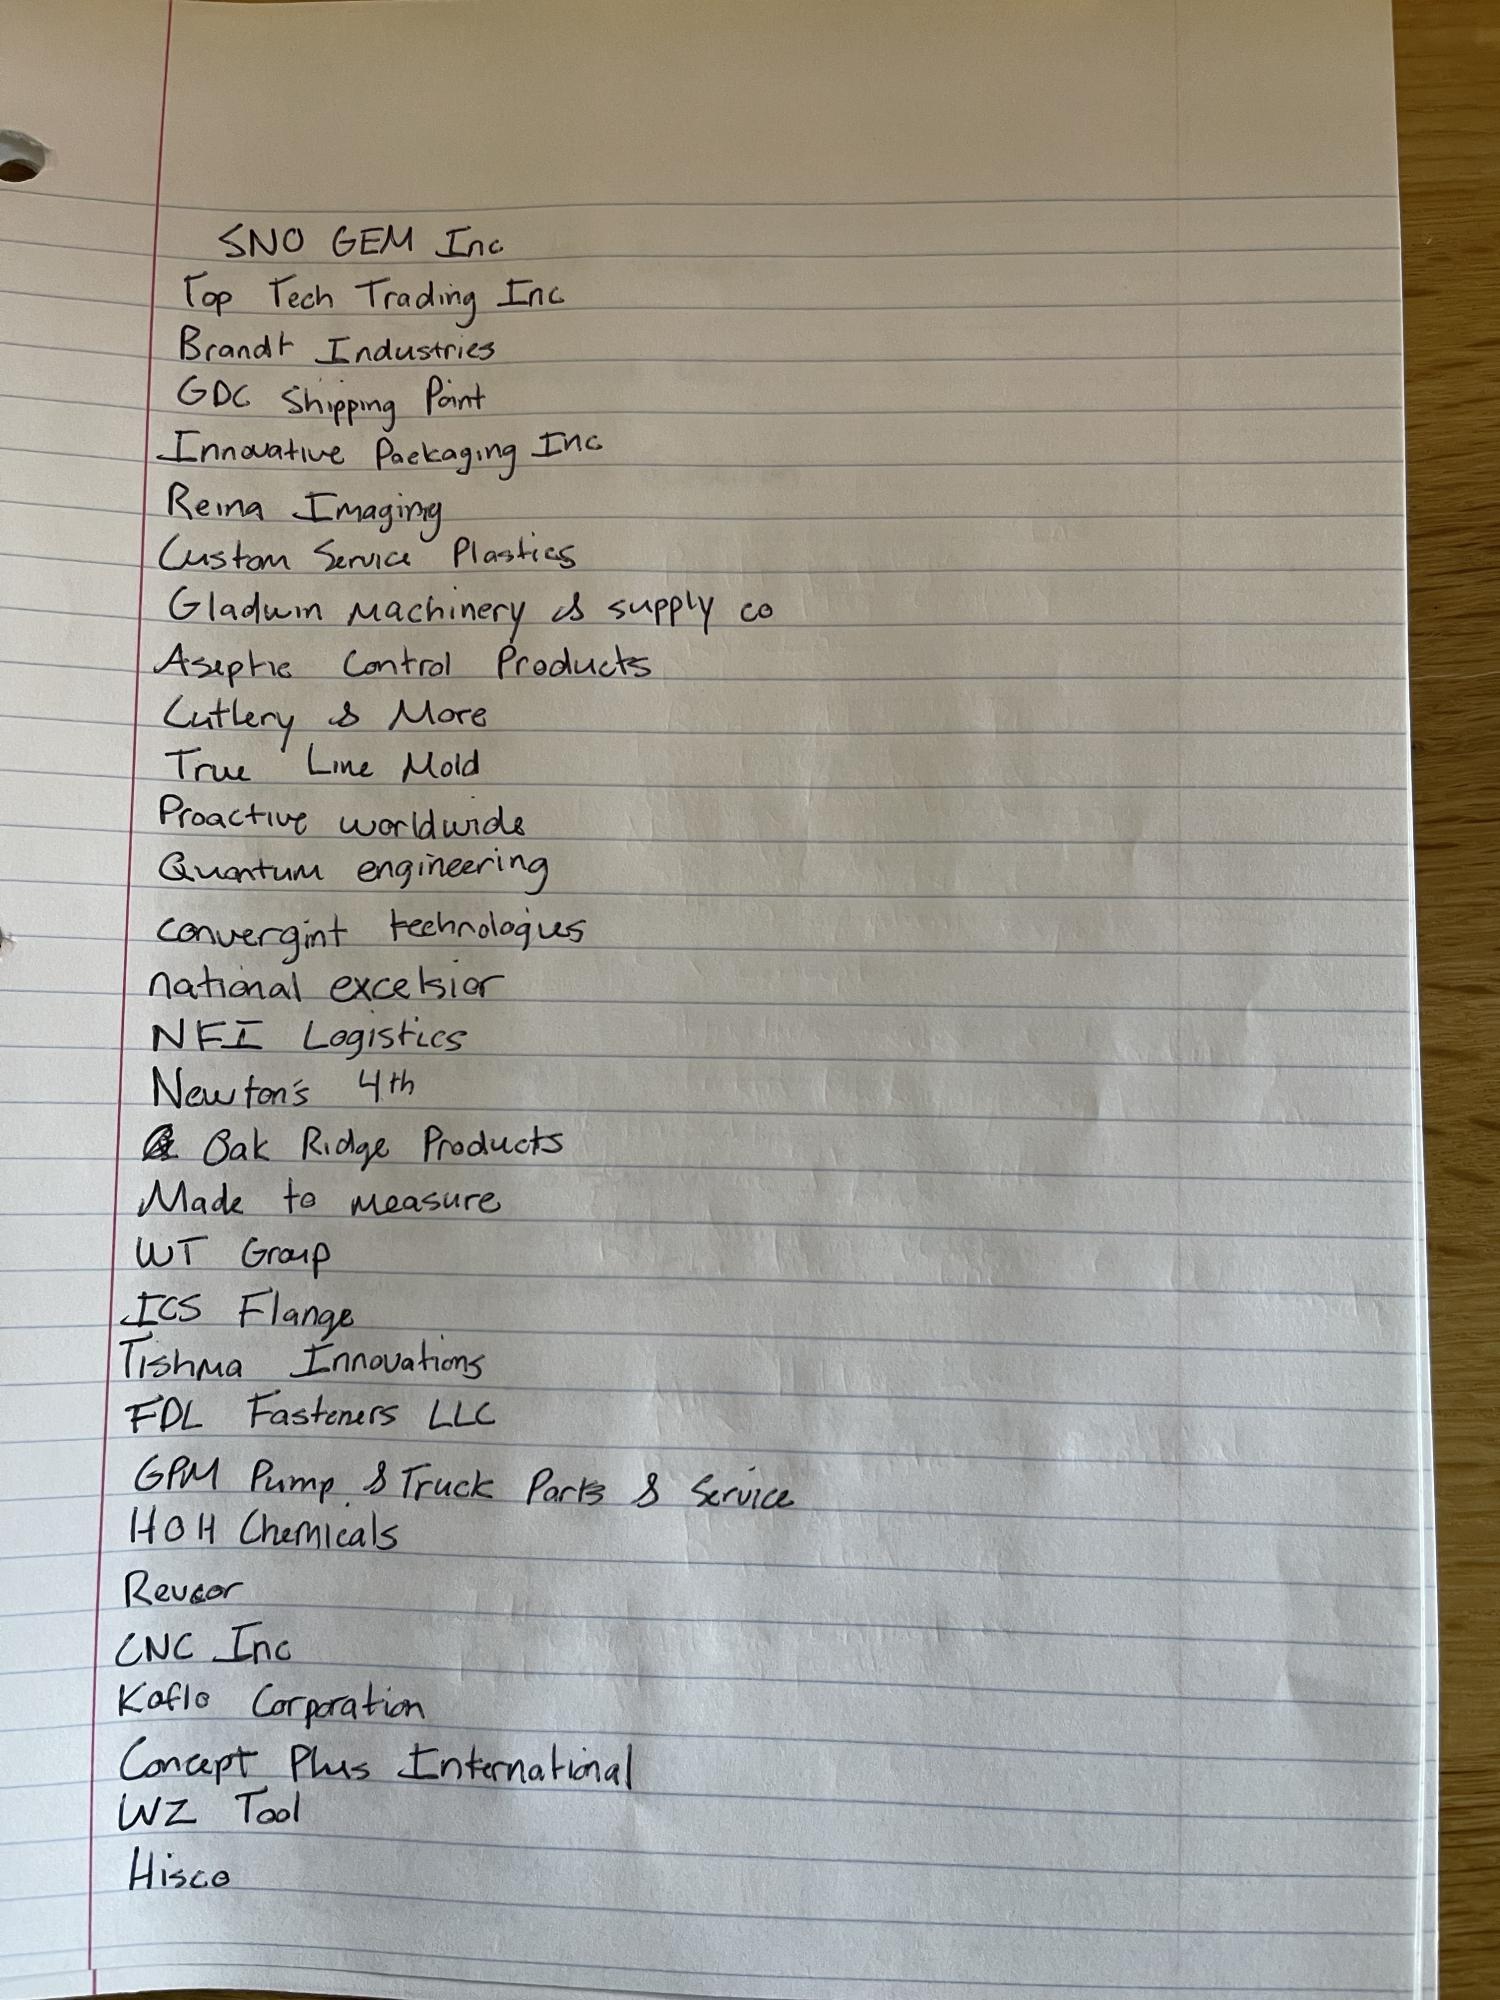 SNO GEM Inc
Top Tech Trading Inc
Brandt Industries
GDC Shipping Point
Innovative Packaging Inc
Reina Imaging
Custom Service Plastics
Gladwin Machinery & supply co
Aseptic Control Products
Cutlery & More
True Line Mold
Proactive worldwide
Quantum engineering
convergint technologies
national excelsior
NFI Logistics
Newton's 4th
Oak Ridge Products
Made to measure
WT Group
ICS Flange
Tishma Innovations
FDL Fasteners LLC
GPM Pump & Truck Parts & Service
HOH Chemicals
Revcor
CNC Inc
Koflo Corporation
Concept Plus International
WZ Tool
Hisco